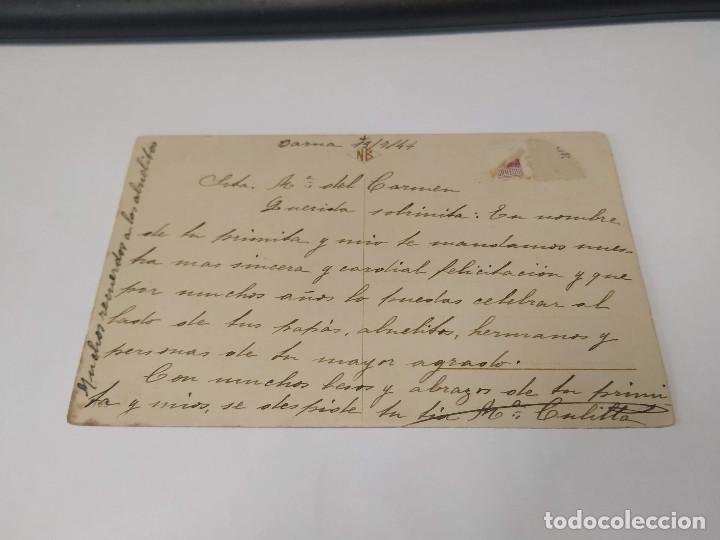 Muchos recuerdos a los abuelitos
Darna 13/7/44
NB
Srta. Mª. del Carmen
Querida sobrinita: En nombre
de tu primita y mio te mandamos nues-
tra mas sincera y cordial felicitación y que
por muchos años lo puedas celebrar al
lado de tus papás, abuelitos, hermanos y
personas de tu mayor agrado.
Con muchos besos y abrazos de tu primi-
ta y mios, se despide tu tia Mª
todocoleccion.net